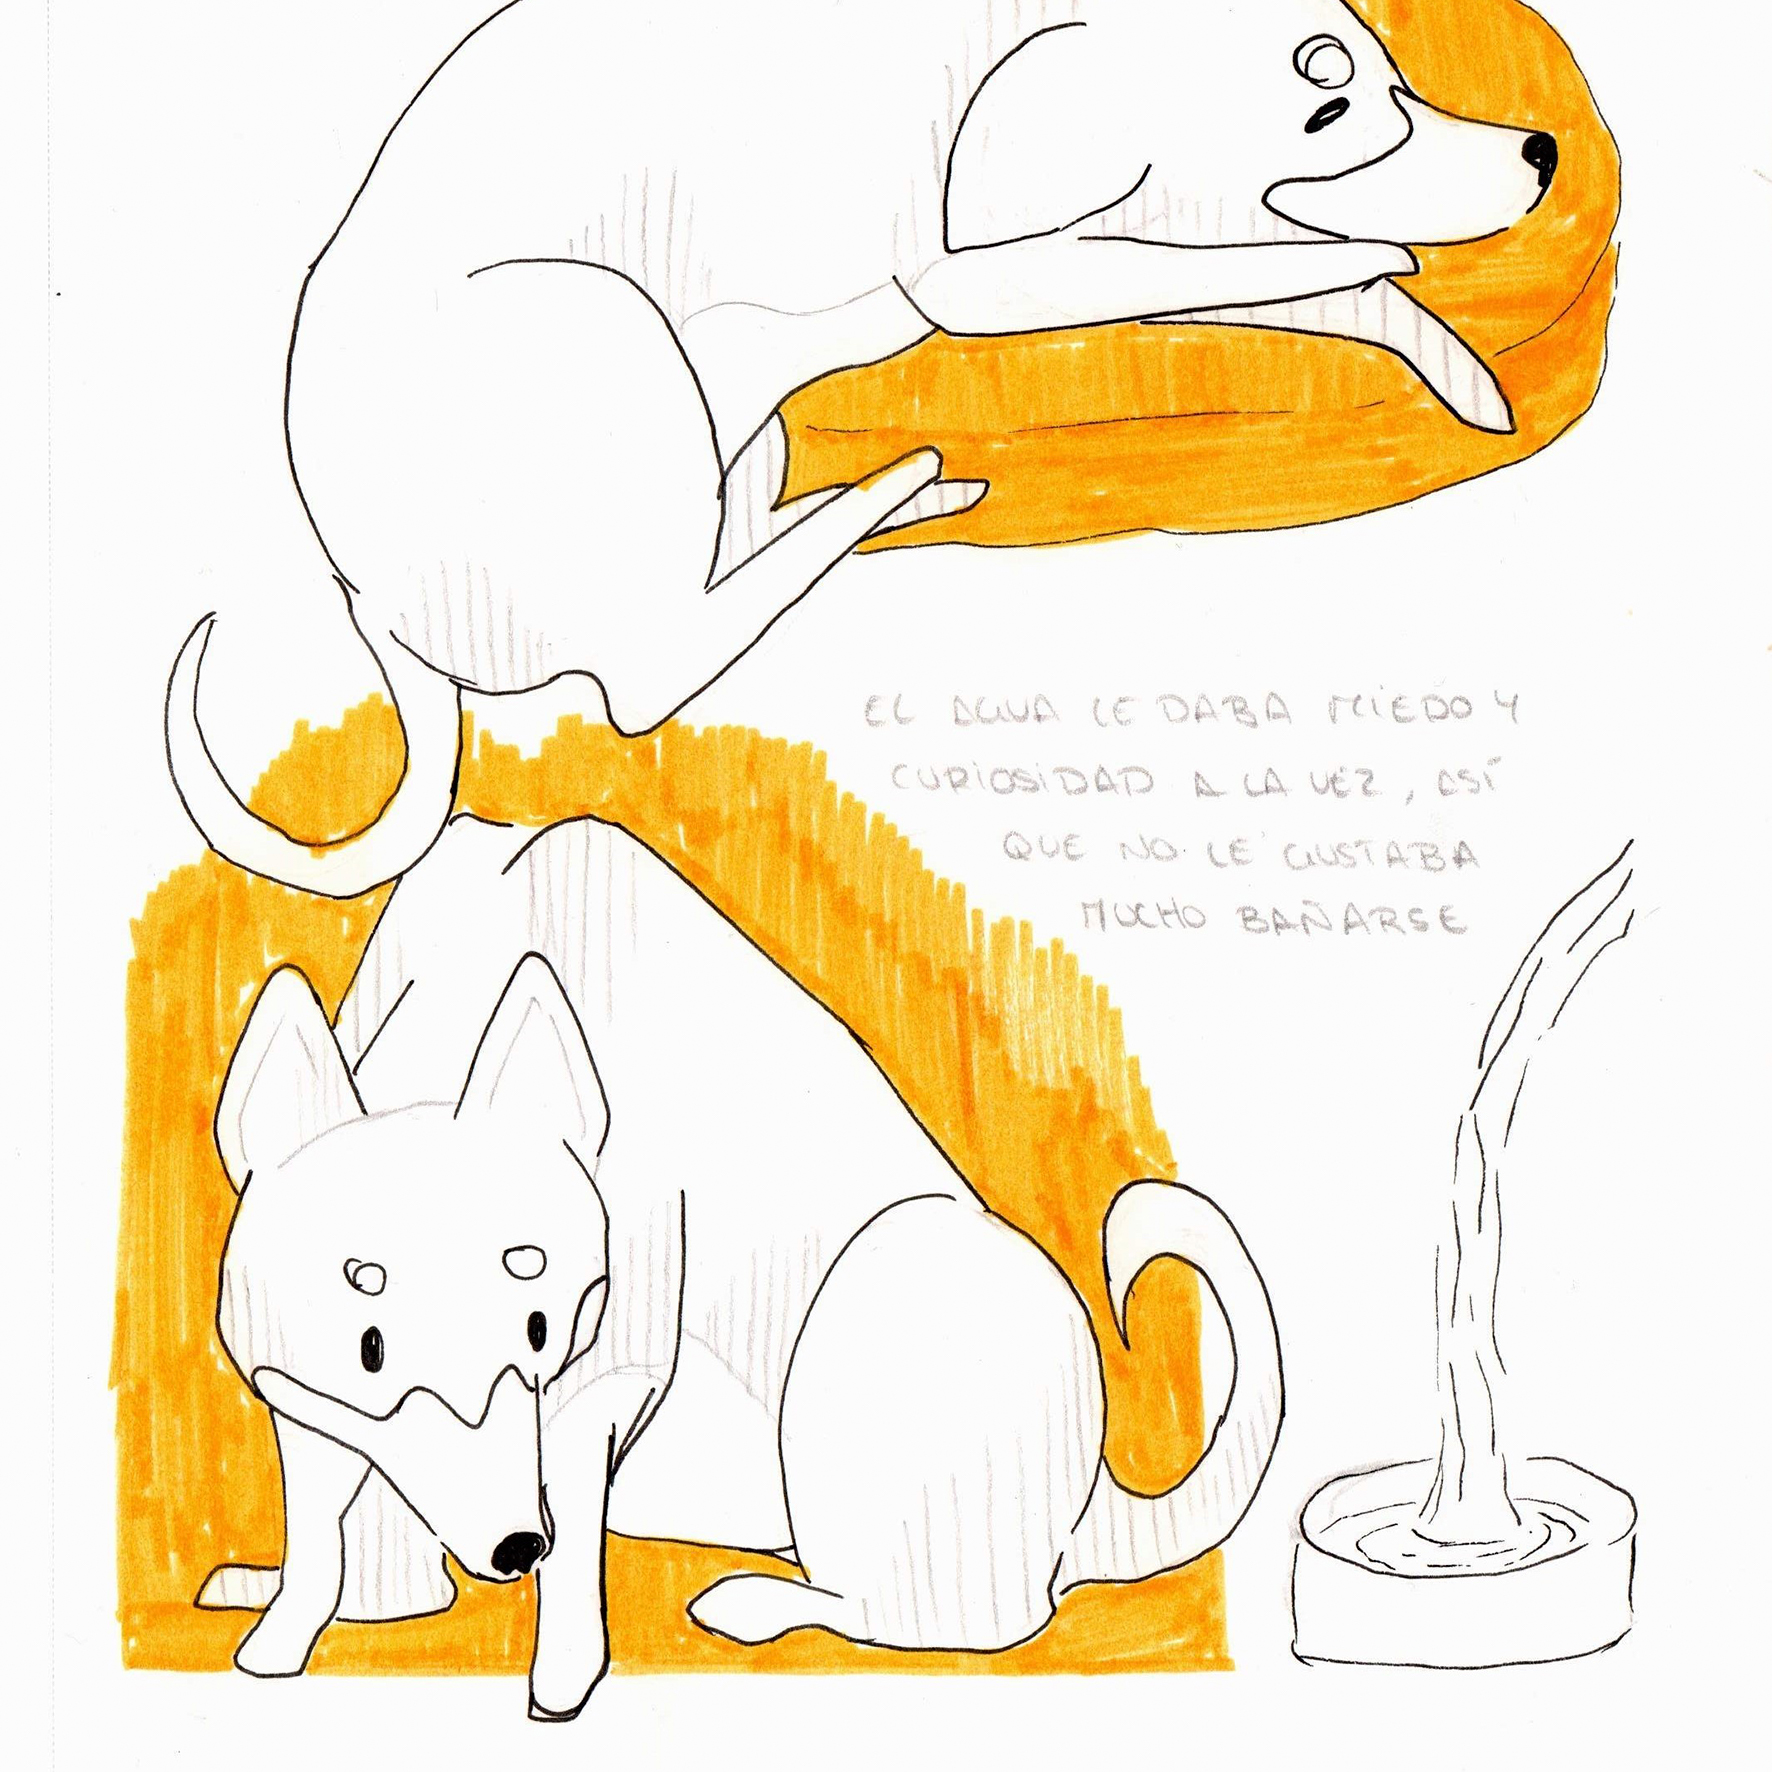 EL AGUA LE DABA MIEDO Y
CURIOSIDAD A LA VEZ, ASÍ
QUE NO LE GUSTABA
MUCHO BAÑARSE